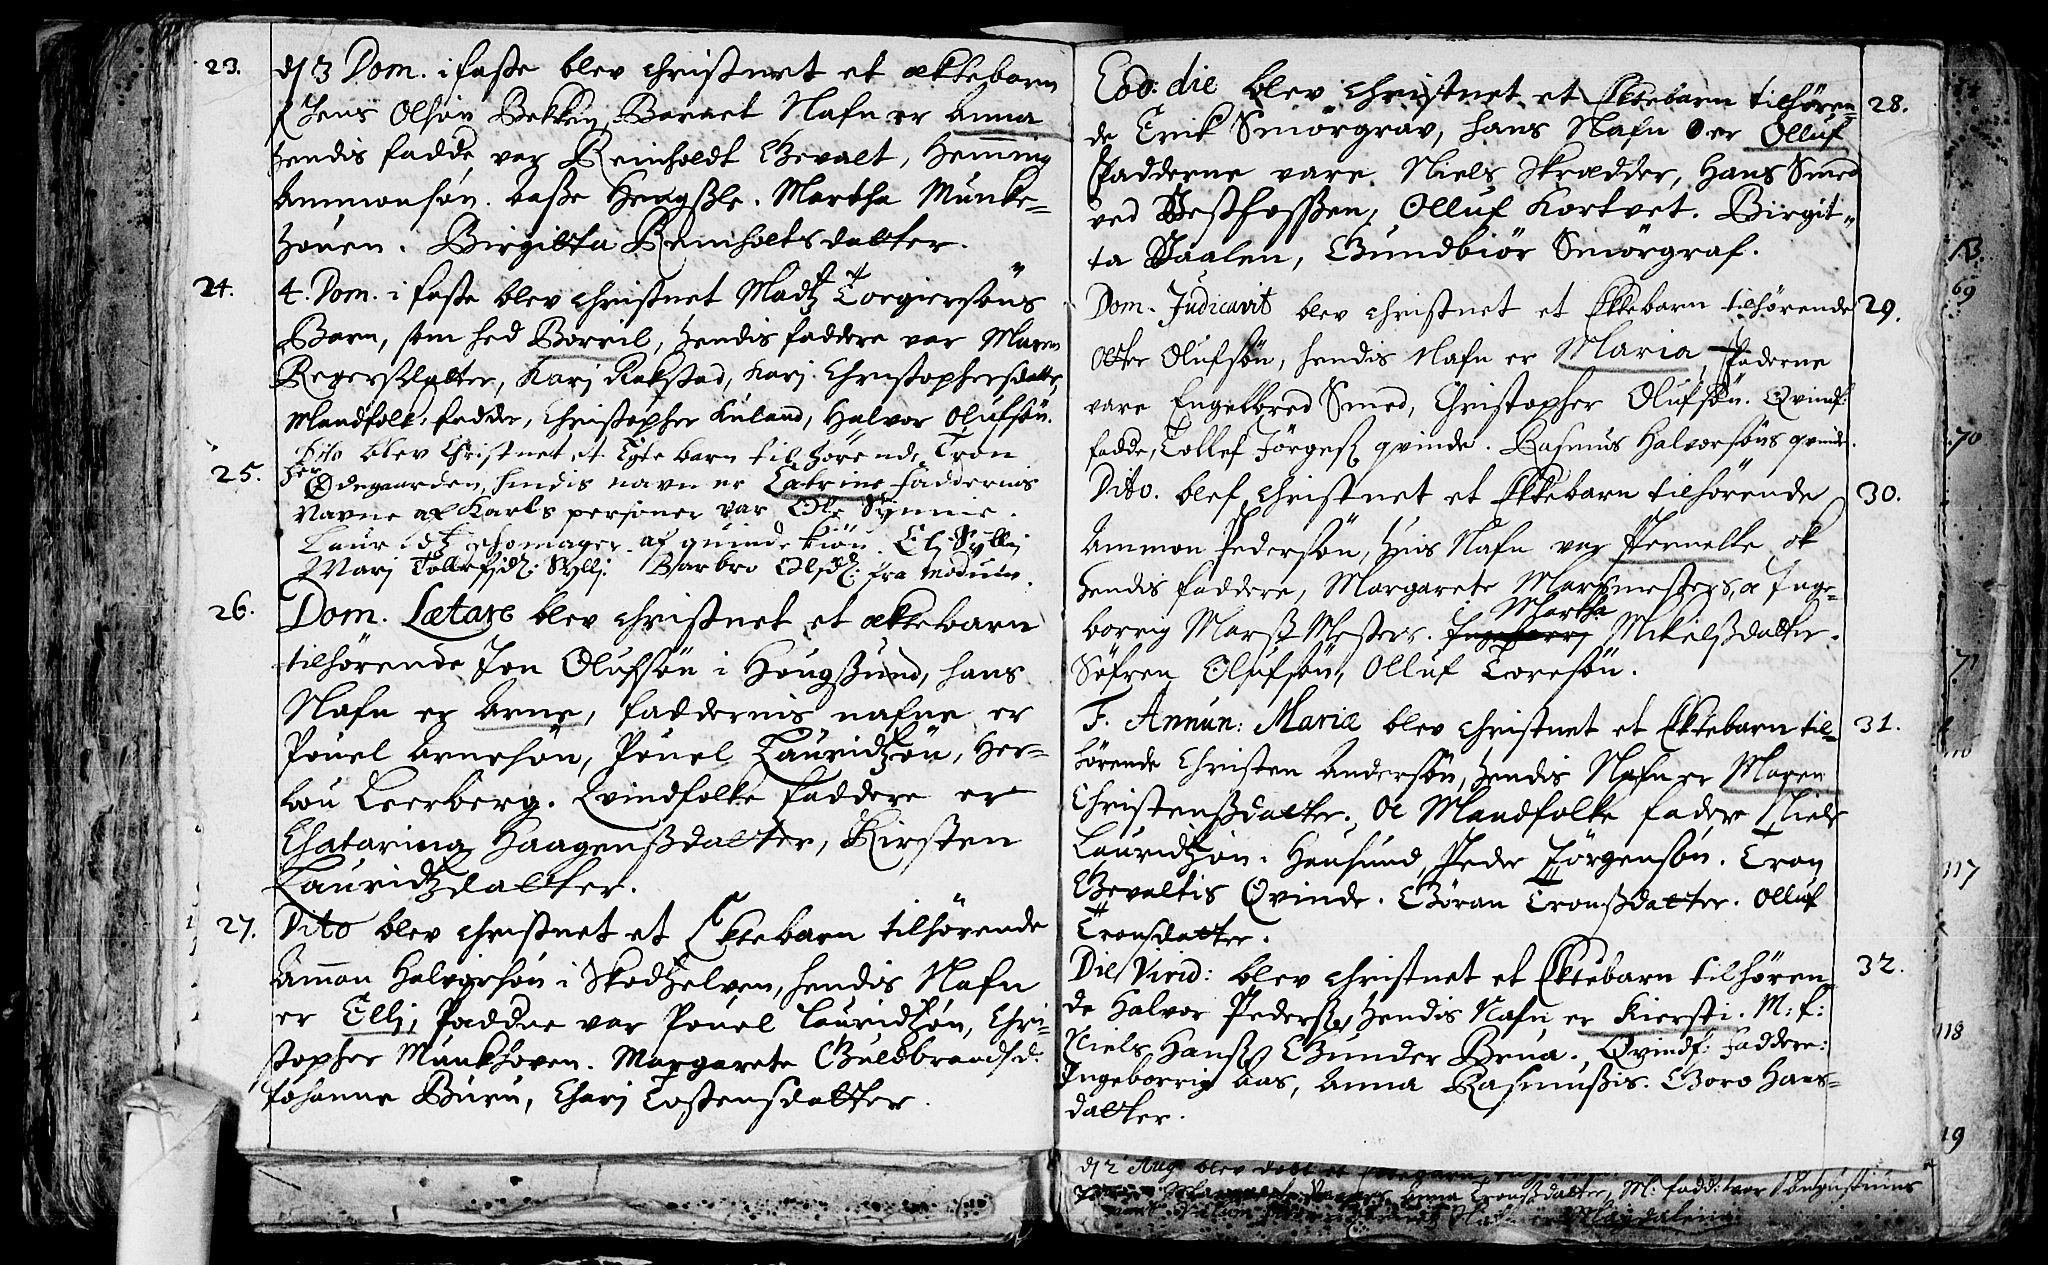 23. d/ 3 Dom. i faste blev christnet et ektebarn
Jens Olsøn Bekkin, Barnet Nafn er Anna
hendis fadde var Reinholdt Gevalt, Hemming
Ammonsøn. Aasse Hengssle. Martha Munke-
houen. Birgitta Reinholtsdatter.
24. 4. Dom. i faste blev christnet Madtz Torgiersøns
Barn, som hed Borril, hendis faddere var Maren
Regerssdatter, Karj Rakstad, Karj Christophersdatter,
Mandfolk-fadder, Christopher Kuland, Halvor Olufsøn.
25. Dito blev Christnet et Egte barn tilhørende Tron
Ødegaarden, hendis navn er Catrine faddernis
Navne af Karls personer var Ole Symie.
Lauridtz schomager. af quinde kiøn. Elj Syllj
Marj Tollefsd: Syllj. Barbro Olsd: fra modum.
26. Dom. Lætare blev christnet et ektebarn
tilhørende Jon Olufsøn i Hougssund, hans
Nafn er Arne, faddernis nafne er
Pouel Arnesøn, Pouel Lauridtzøn, Her-
bou Leerberg. Qvindfolke faddere er
Chatarina Haagenssdatter, Kirsten
Lauridtzdatter.
27. Dito blev christnet et Ektebarn tilhørende
Amon Halvorsøn i Skodtzelven, hendis Nafn
er Ellj, faddre var Pouel Lauridtzøn, Chri-
stopher Munkhoven. Margarete Guldbrandsd:
Johanne Buru, Charj Tostensdatter.
Eod: die blev christnet et Ektebarn tilhøren- 28.
de Erik Smørgrav, hans Nafn er Olluf
Fadderne vare Niels Skrædder, Hans Smed
ved Vestfossen, Olluf Kortvet. Birgit-
ta Daalen, Gundbiør Smørgraf.
Dom. Judicavit blev christnet et Ektebarn tilhørende 29.
Otter Olufsøn, hendis Nafn er Maria, Faderne
vare Engelbred Smed, Christopher Olufsøn. Qvindf:
fadde, Tollef Jørgens qvinde. Rasmus Halvorsøns qvinde.
Dito. blef christnet et Ektebarn tilhørende 30.
Ammon Pedersøn, hvis Nafn var Pernelle ok
hendis faddere, Margarete Marsmesters, a Inge-
borrig Marss Mesters. Martha Mikelssdatter.
Søfren Olufsøn, Olluf Toresøn.
F. Annun: Mariæ blev christnet et Ektebarn til- 31.
hørende Christen Andersøn, hendis Nafn er Maren
Christenssdatter. Oc Mandfolke fadere Niels
Lauridtzøn. Hansund, Peder Jørgensøn. Tron
Gevaltis Qvinde. Gøran Tronssdatter. Olluf
Tronsdatter.
Die Virid: blev christnet et Ektebarn tilhøren- 32.
de Halvor Peders, hendis Nafn er Kiersti. M: f:
Niels Hanss Gunder Brua. Qvindf: Faddere:
Ingeborrig Aas, Anna Rasmussis. Goro Hans-
datter.
d/ 2 Aug: blev døbt et
Anna Tronssdatter, M: fadd: var
Nafn er Magdalena
13.
69
70
7
117
118
19